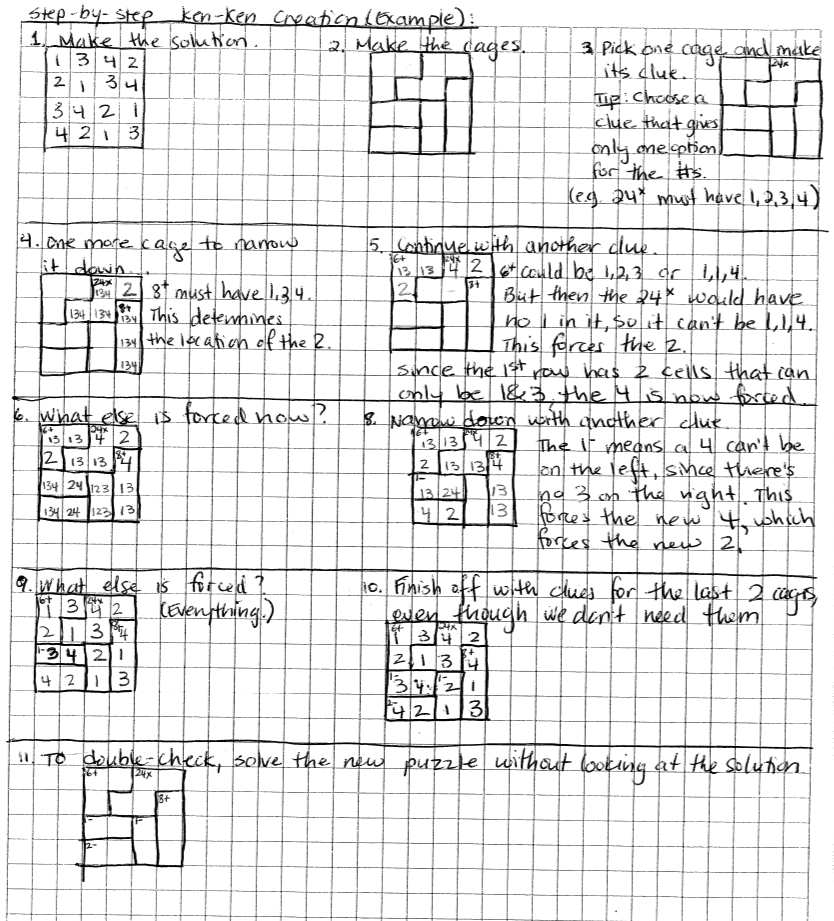 Step-by-step Ken-Ken Creation (Example):
1. Make the solution.
1 3 4 2
2 1 3 4
3 4 2 1
4 2 1 3
2. Make the cages.
3. Pick one cage and make
its clue.
Tip: Choose a
clue that gives
only one option
for the #s.
(e.g. 24x must have 1,2,3,4)
24x
4. One more cage to narrow
it down...
24x
134 2
134 134 8+
134
134
134
8+ must have 1,3,4.
This determines
the location of the 2.
5. Continue with another clue.
6+ 24x
13 13 4 2
2 8+
6+ could be 1,2,3 or 1,1,4.
But then the 24x would have
no 1 in it, so it can't be 1,1,4.
This forces the 2.
since the 1st row has 2 cells that can
only be 1&3, the 4 is now forced.
6. What else is forced now?
6+ 24x
13 13 4 2
2 13 13 8+ 4
134 24 123 13
134 24 123 13
8. Narrow down with another clue
6+ 24x
13 13 4 2
2 13 13 8+ 4
1-
13 24 13
4 2 13
The 1- means a 4 can't be
on the left, since there's
no 3 on the right. This
forces the new 4, which
forces the new 2.
9. What else is forced?
(Everything.)
6+ 24x
1 3 4 2
2 1 3 8+ 4
1- 3 4 2 1
4 2 1 3
10. Finish off with clues for the last 2 cages,
even though we don't need them
6+ 24x
1 3 4 2
2 1 3 8+ 4
1- 3 4 1- 2 1
2- 4 2 1 3
11. To double-check, solve the new puzzle without looking at the solution.
6+ 24x
8+
1- 1-
2-